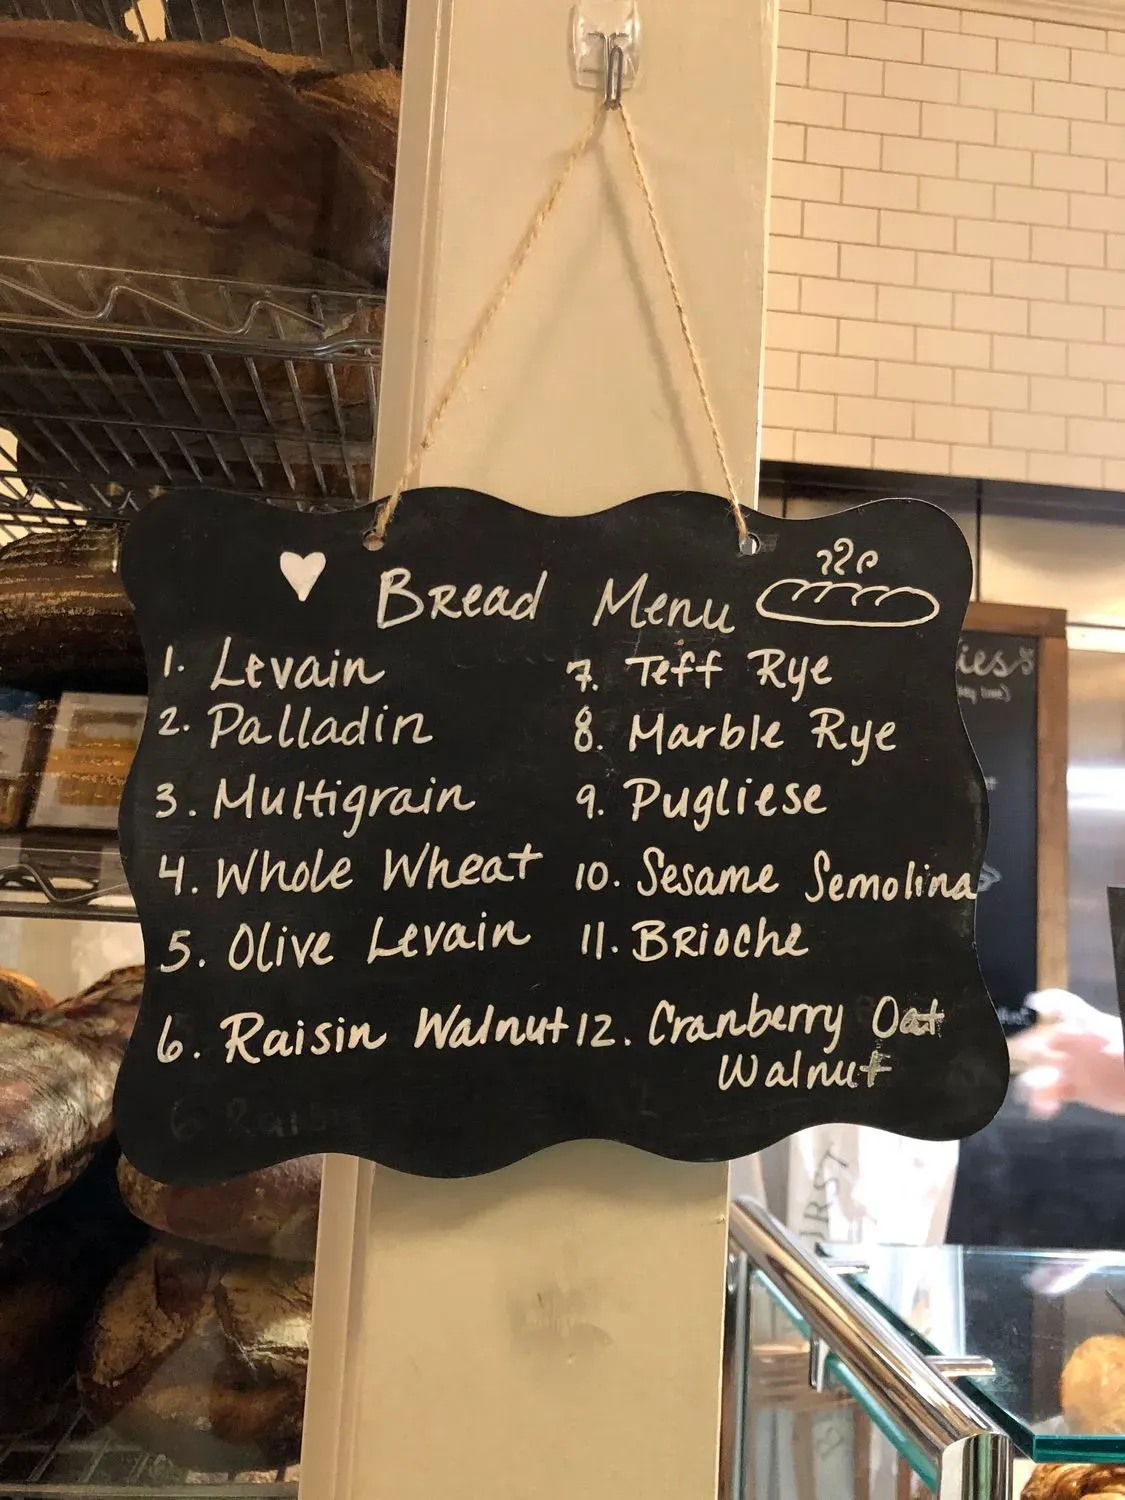 Bread Menu
1. Levain
2. Palladin
3. Multigrain
4. Whole Wheat
5. Olive Levain
6. Raisin Walnut
7. Teff Rye
8. Marble Rye
9. Pugliese
10. Sesame Semolina
11. Brioche
12. Cranberry Oat
Walnut
6 Rais
ies